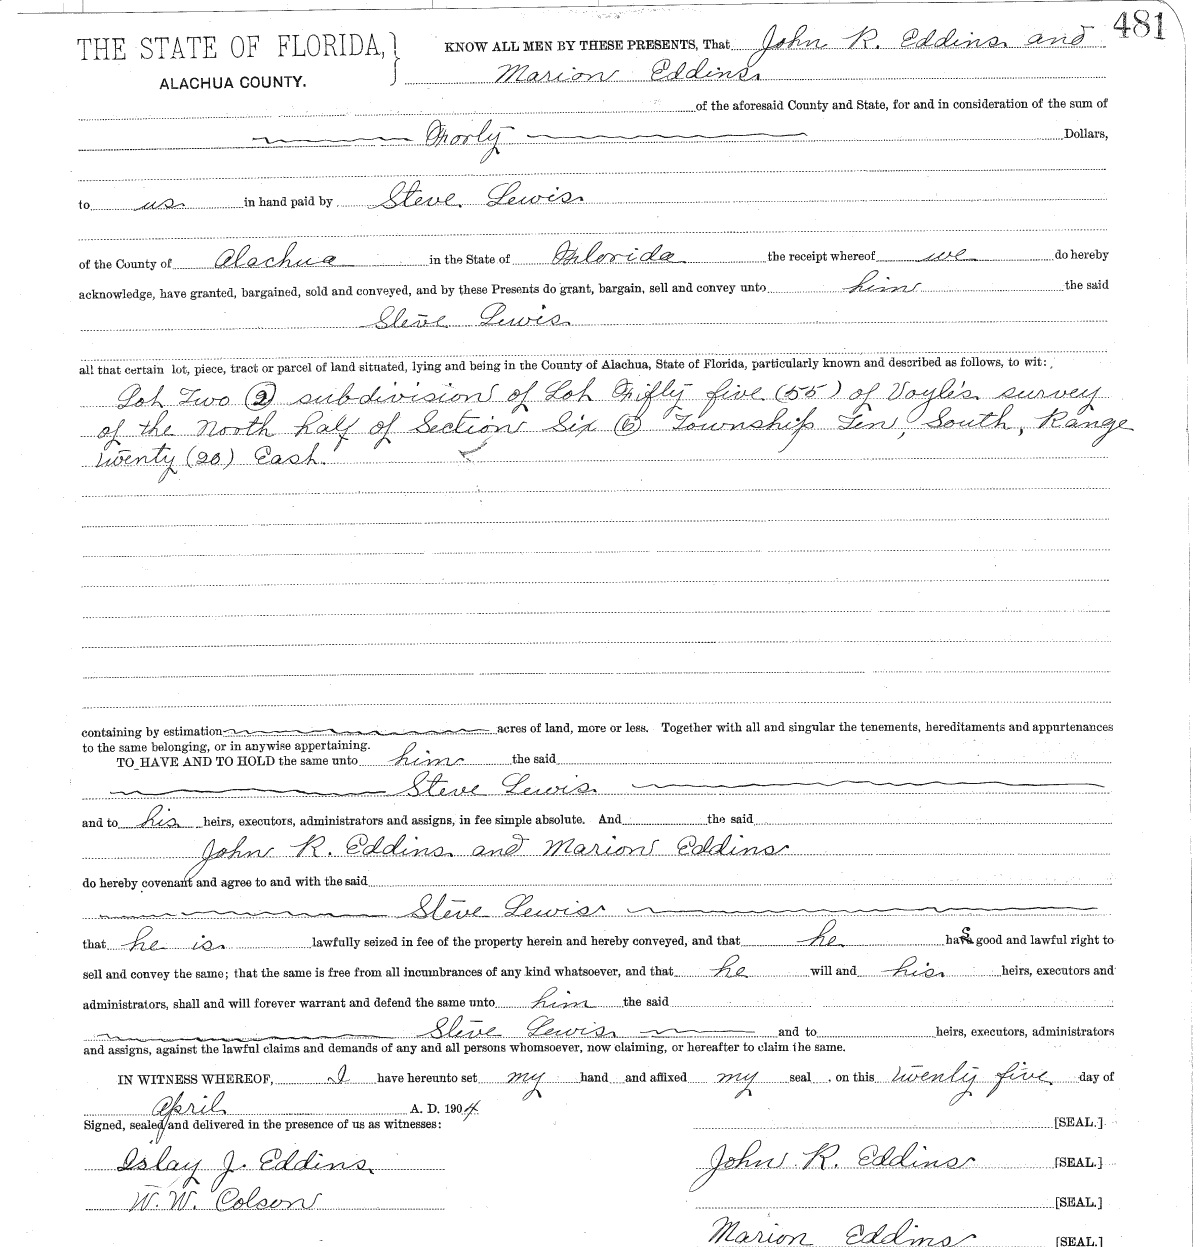 481
THE STATE OF FLORIDA,
ALACHUA COUNTY.
KNOW ALL MEN BY THESE PRESENTS, That John R. Eddins and
Marion Eddins
of the aforesaid County and State, for and in consideration of the sum of
Forty Dollars,
to us in hand paid by Steve Lewis
of the County of Alachua in the State of Florida the receipt whereof we do hereby
acknowledge, have granted, bargained, sold and conveyed, and by these Presents do grant, bargain, sell and convey unto him the said
Steve Lewis
all that certain lot, piece, tract or parcel of land situated, lying and being in the County of Alachua, State of Florida, particularly known and described as follows, to wit:
Lot Two (2) subdivision of Lot Fifty five (55) of Voyle's survey
of the North half of Section Six (6) Township Ten, South, Range
twenty (20) East.
containing by estimation acres of land, more or less. Together with all and singular the tenements, hereditaments and appurtenances
to the same belonging, or in anywise appertaining.
TO HAVE AND TO HOLD the same unto him the said
Steve Lewis
and to his heirs, executors, administrators and assigns, in fee simple absolute. And the said
John R. Eddins and Marion Eddins
do hereby covenant and agree to and with the said
Steve Lewis
that he is lawfully seized in fee of the property herein and hereby conveyed, and that he has good and lawful right to
sell and convey the same; that the same is free from all incumbrances of any kind whatsoever, and that he will and his heirs, executors and
administrators, shall and will forever warrant and defend the same unto him the said
Steve Lewis and to heirs, executors, administrators
and assigns, against the lawful claims and demands of any and all persons whomsoever, now claiming, or hereafter to claim the same.
IN WITNESS WHEREOF, I have hereunto set my hand and affixed my seal, on this twenty five day of
April A. D. 1904
Signed, sealed and delivered in the presence of us as witnesses: [SEAL.]
Islay J. Eddins John R. Eddins [SEAL.]
W. W. Colson [SEAL.]
Marion Eddins [SEAL.]